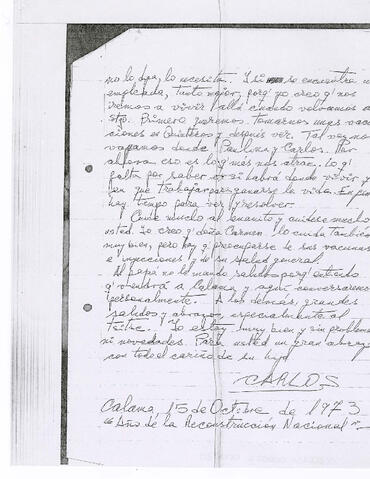 no lo dya, lo necesitan. Y si se encuentra un
empleada, tanto mejor, porq' yo creo q' nos
iremos a vivir allá cuando volvamos a
stgo. Primero queremos tomarnos unas vaca
ciones en Quinteros y después ver. Tal vez nos
vayamos donde Paulina y Carlos. Por
ahora eso es lo q' más nos atrae. Lo q'
falta por saber es si habrá donde vivir y
en que trabajar para ganarse la vida. En fin
hay tiempo para ver y resolver.
Cuide mucho al enanito y cuídese mucho
usted. Yo creo q' doña Carmen lo cuida también
muy bien, pero hay q' preocuparse de sus vacunas
e inyecciones y de su salud general.
Al papá no le mando saludos porq' entiendo
q' vendrá a Calama y aquí conversaremos
personalmente. A los demás, grandes
saludos y abrazos, especialmente al
Tatita. Yo estoy muy bien y sin problemas
ni novedades. Para usted un gran abrazo
con todo el cariño de su hijo
CARLOS
Calama, 15 de Octubre de 1973
"Año de la Reconstrucción Nacional".